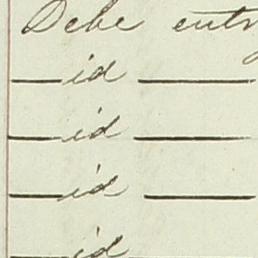 Debe entr
— id —
— id —
— id —
— id